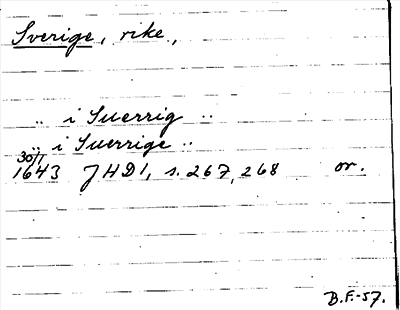 Sverige, rike,
.. i Suerrig ..
.. i Suerrige ..
30/1
1643 JHD1, s. 267, 268 or.
B.F.-57.